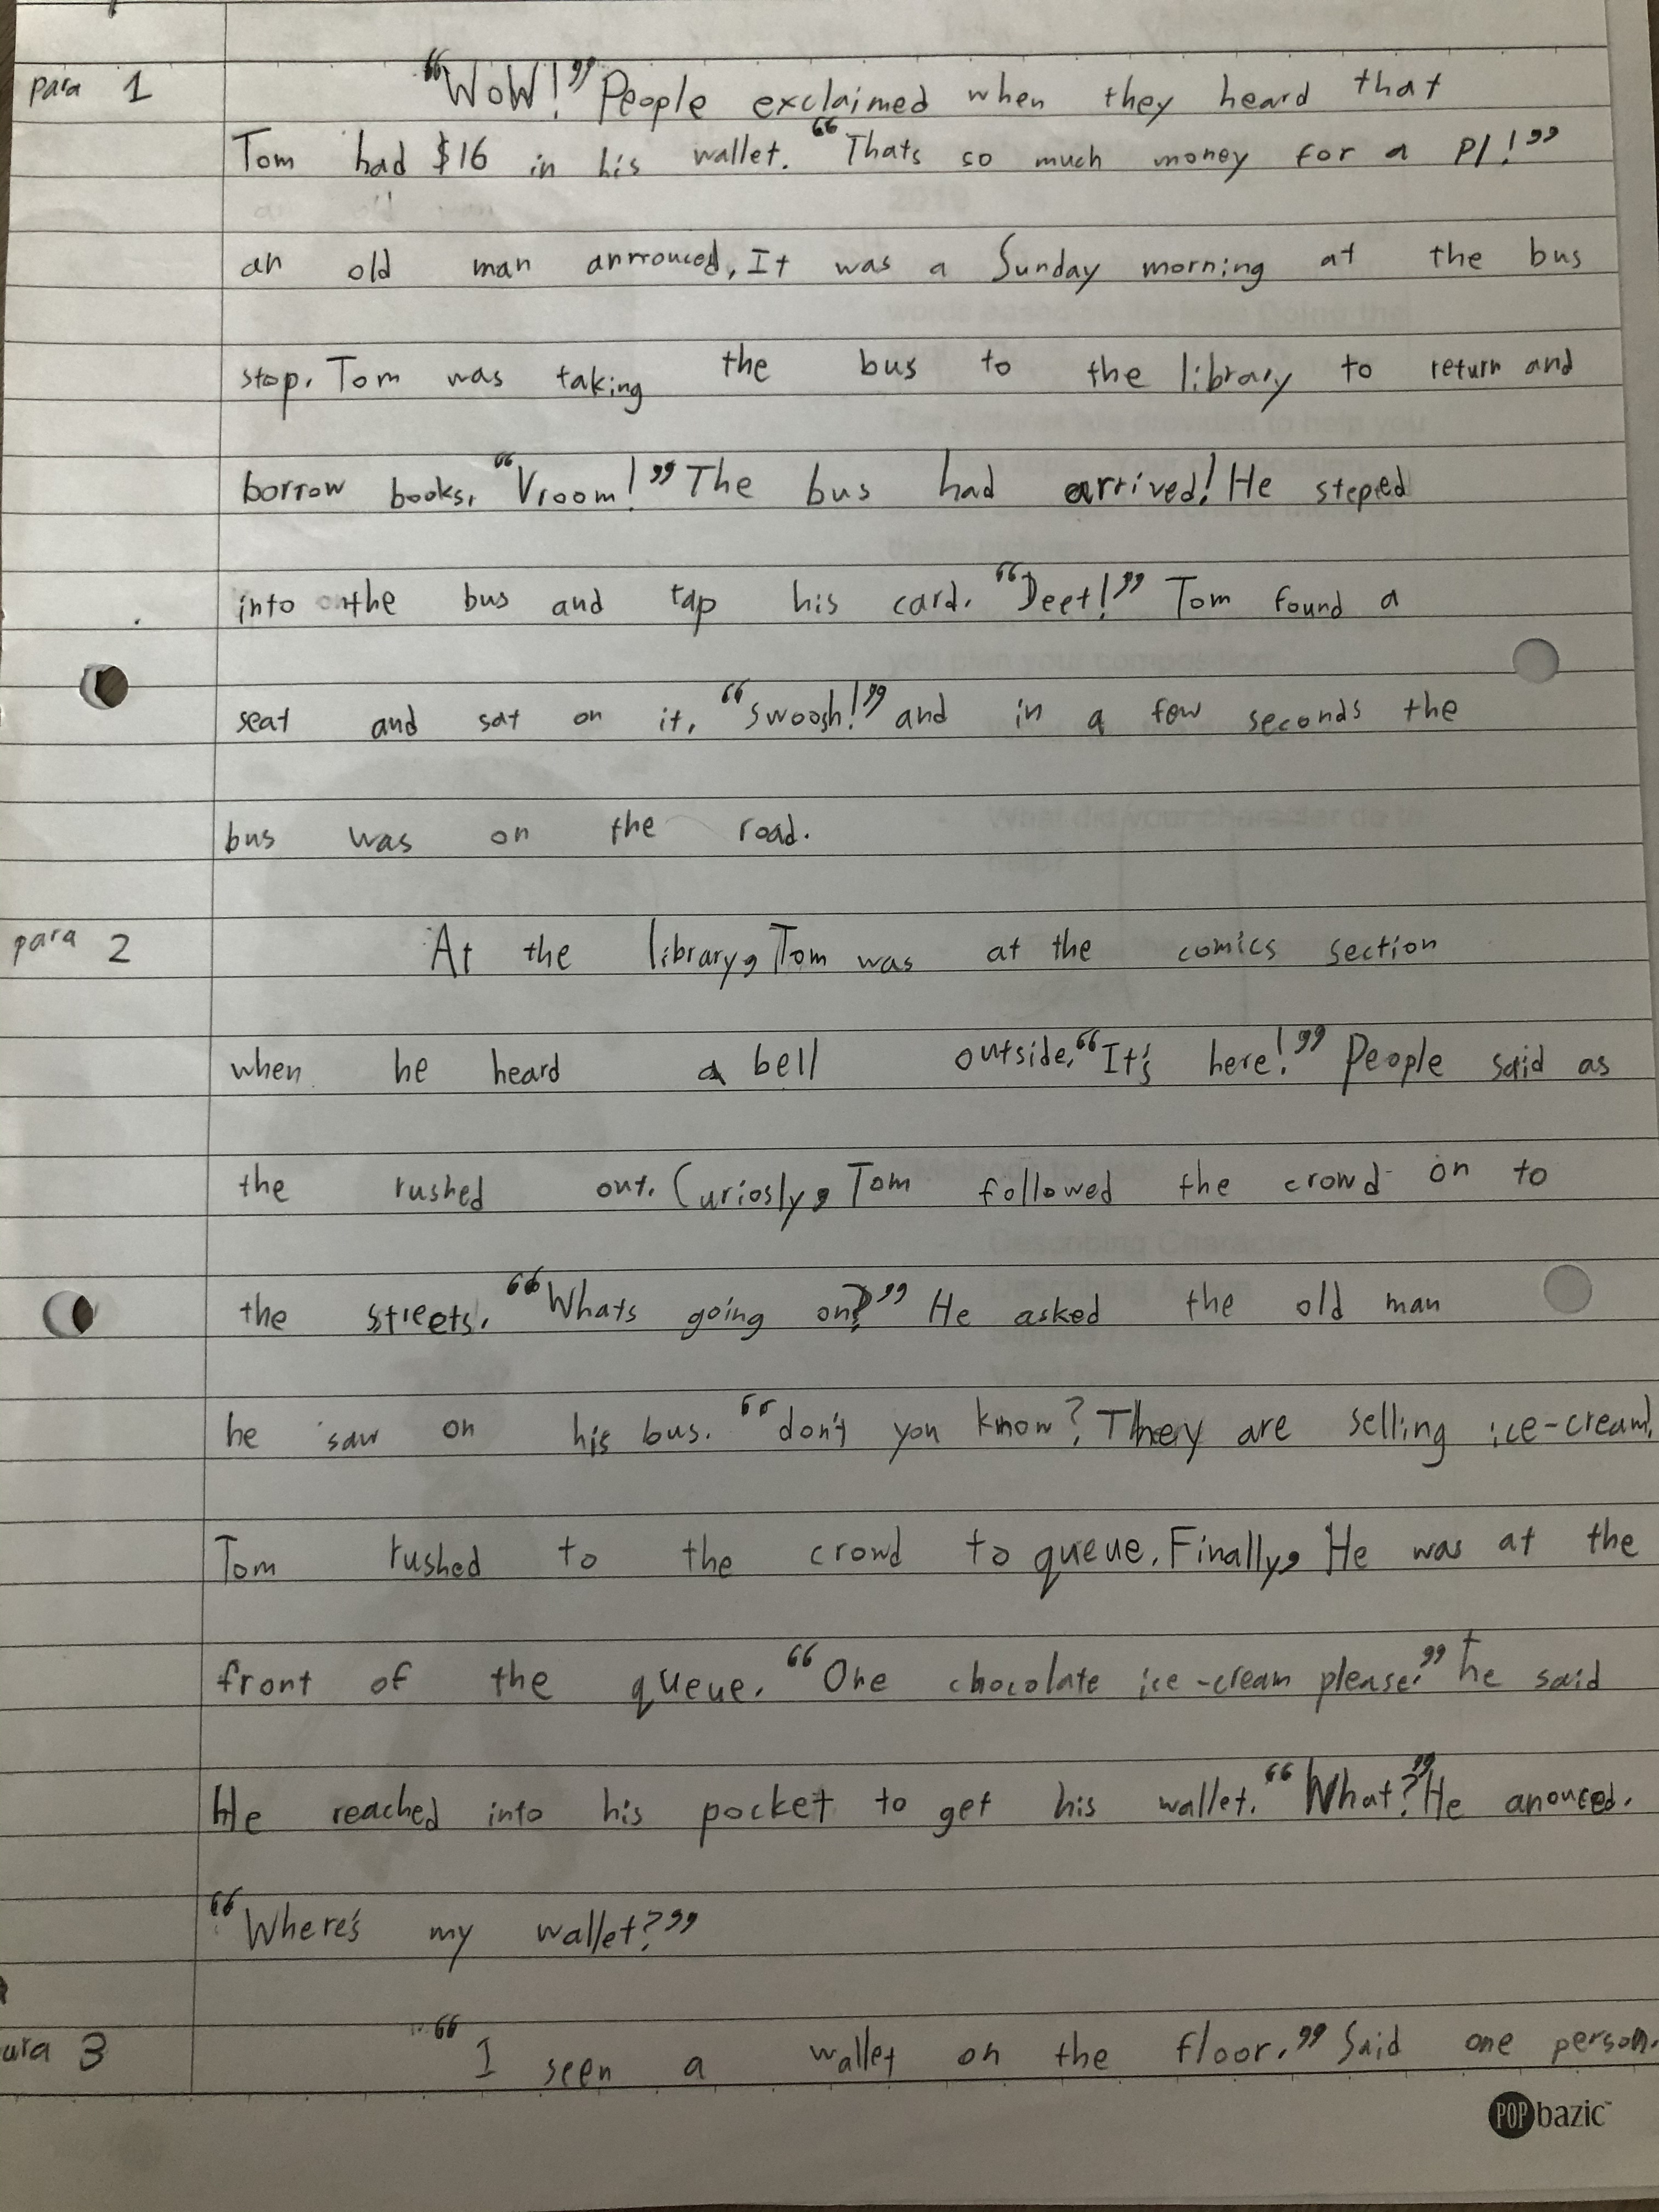 para 1 “WoW!” People exclaimed when they heard that
Tom had $16 in his wallet. “Thats so much money for a P1!”
an old man annouced, It was a Sunday morning at the bus
stop. Tom was taking the bus to the library to return and
borrow books. “Vroom!” The bus had arrived! He steped
into the bus and tap his card. “Deet!” Tom found a
seat and sat on it. “Swoosh!” and in a few seconds the
bus was on the road.
para 2 At the library, Tom was at the comics section
when he heard a bell outside. “It's here!” People said as
the rushed out. Curiosly, Tom followed the crowd on to
the streets. “Whats going on?” He asked the old man
he saw on his bus. “don't you know? They are selling ice-cream.
Tom rushed to the crowd to queue. Finally, He was at the
front of the queue. “One chocolate ice-cream please.” he said
He reached into his pocket to get his wallet. “What?” He anouced.
“Where's my wallet?”
ara 3 “I seen a wallet on the floor.” Said one person.
POP bazic™